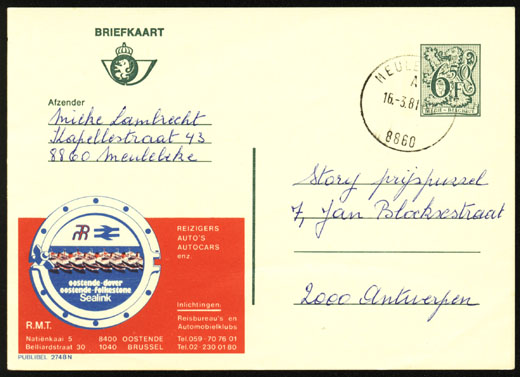 BRIEFKAART
Afzender
Mieke Lambrecht
Kapellestraat 43
8860 Meulebeke
MEULE
A
16.-3.81
8860
6,50F
BELGIE - BELGIQUE
Story prijspuzzel
7, Jan Blockxstraat
2000 Antwerpen
REIZIGERS
AUTO'S
AUTOCARS
enz.
oostende-dover
oostende-folkestone
Sealink
Inlichtingen:
Reisbureau's en
Automobielklubs
R.M.T.
Natiënkaai 5 8400 OOSTENDE Tel.059-70 76 01
Belliardstraat 30 1040 BRUSSEL Tel.02-230 01 80
PUBLIBEL 2748N